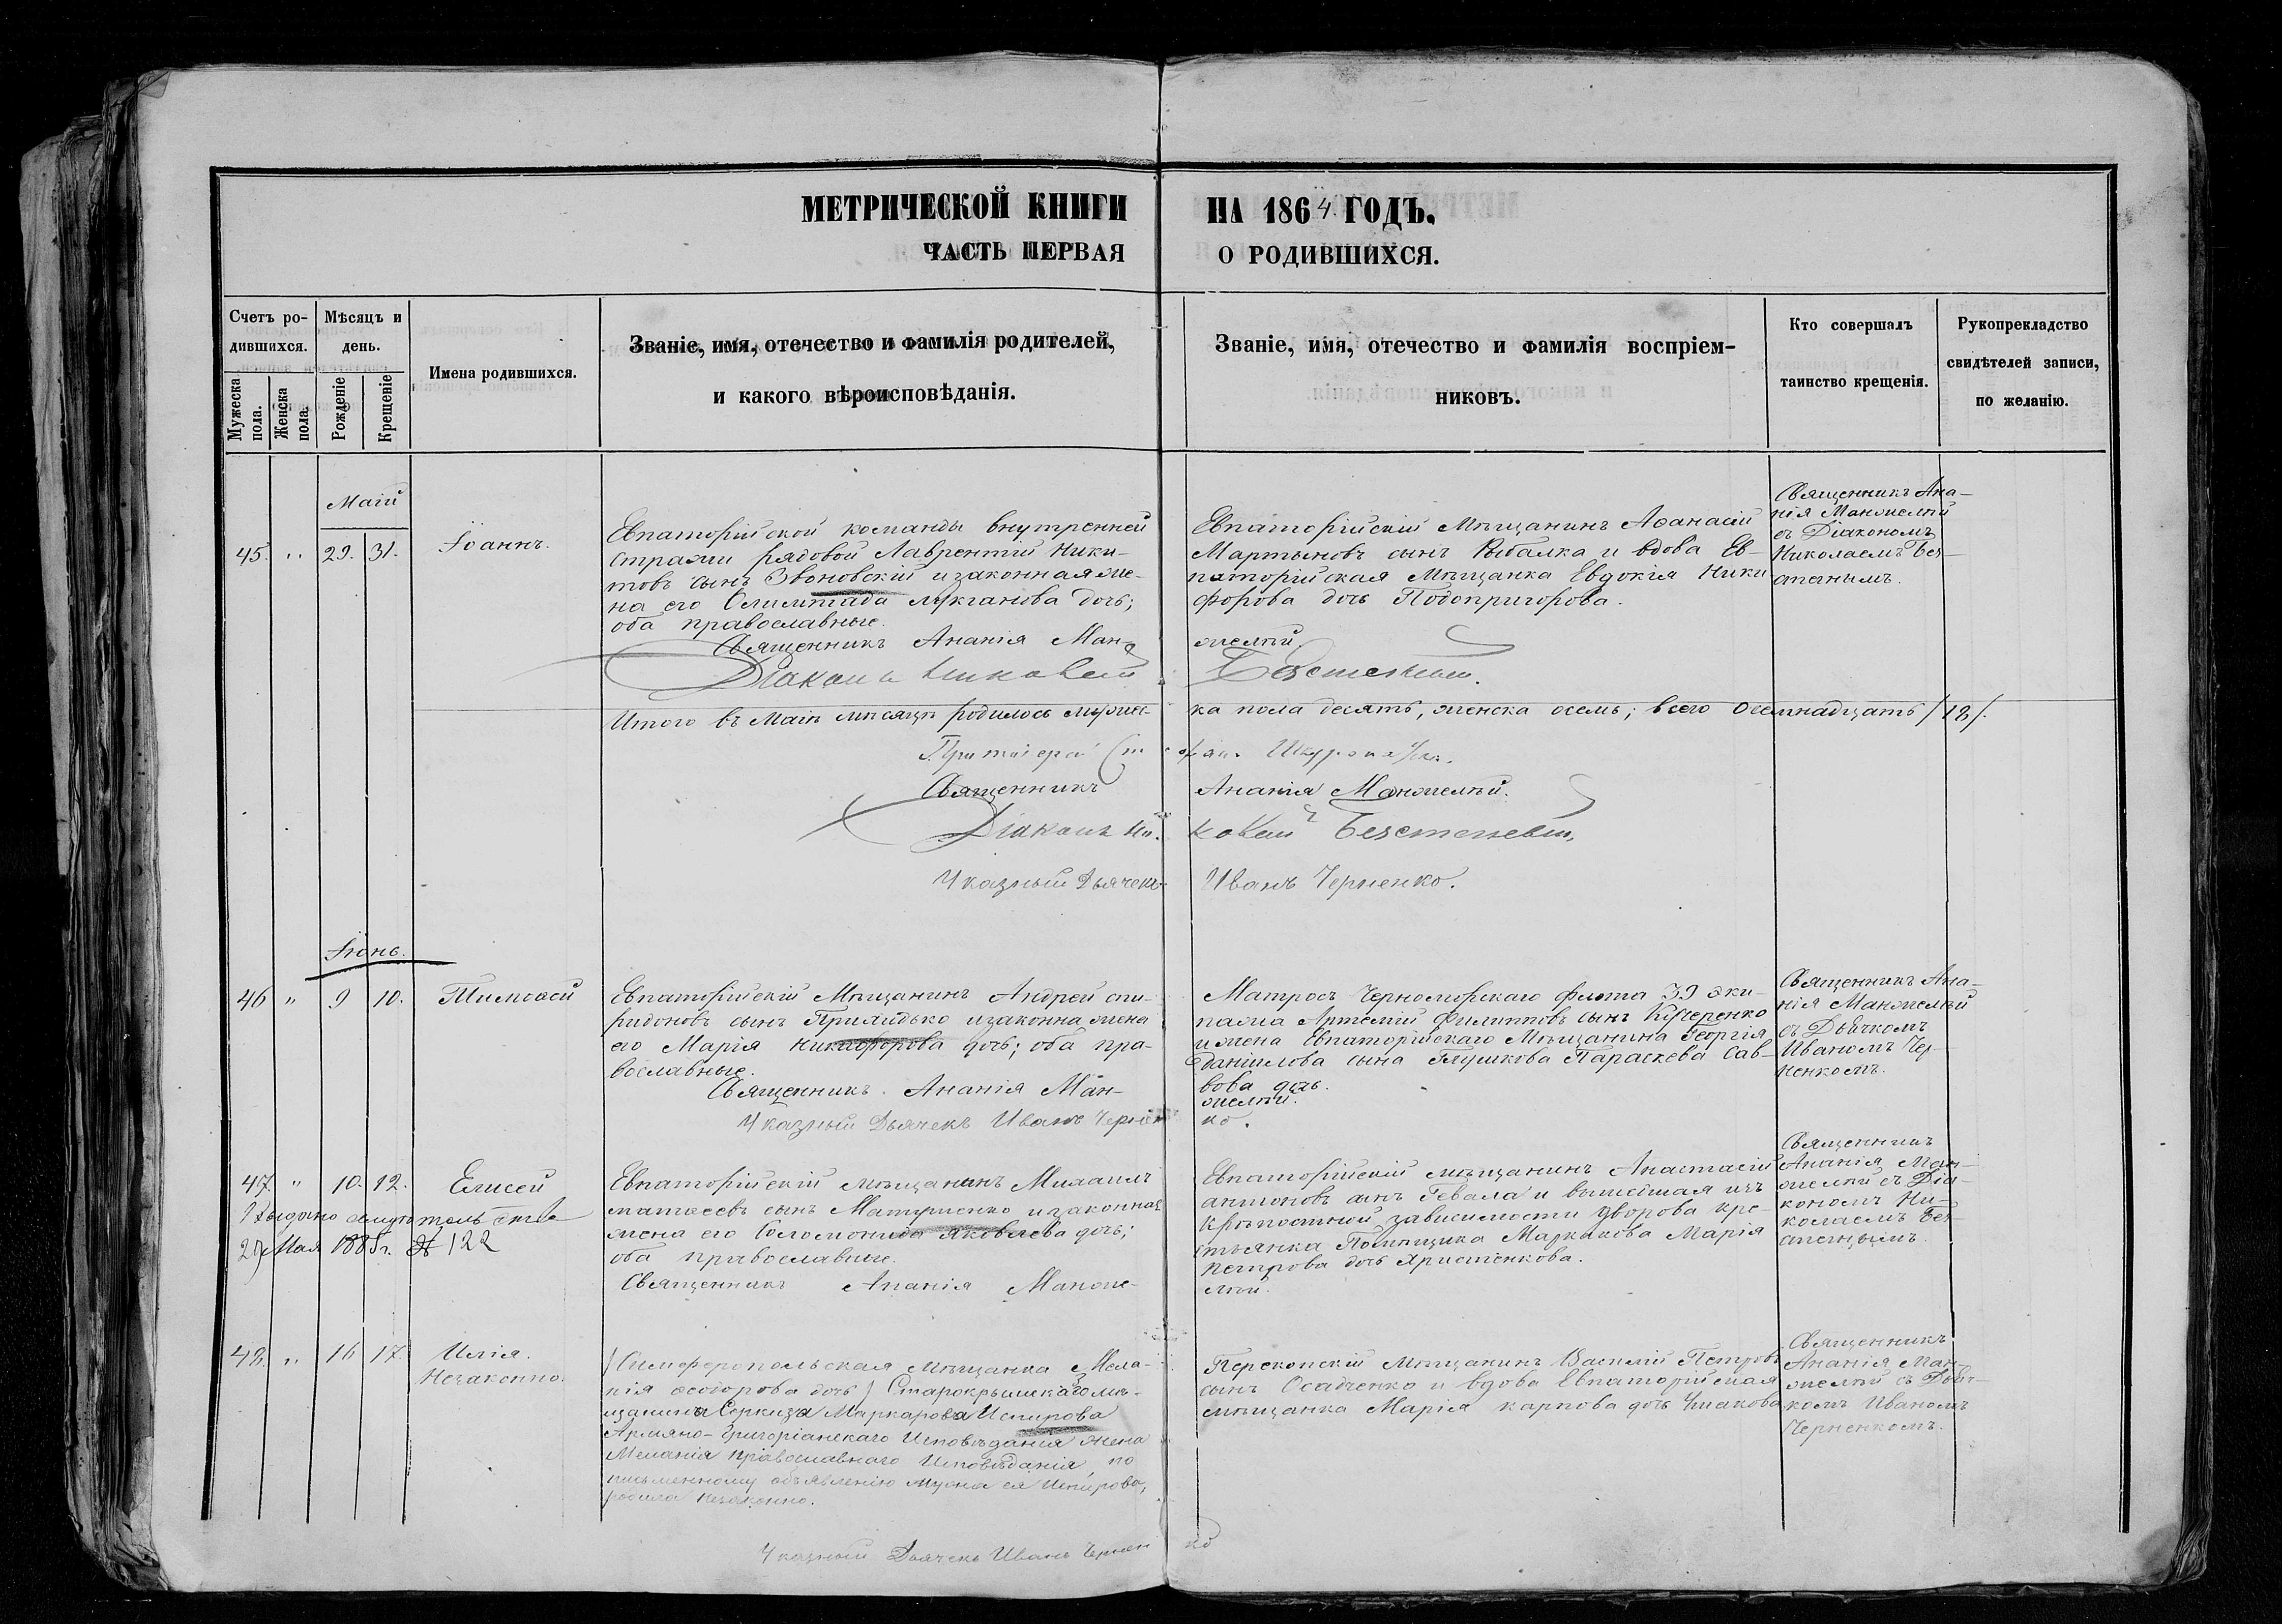 МЕТРИЧЕСКОЙ КНИГИ НА 1864 ГОДЪ.
ЧАСТЬ ПЕРВАЯ О РОДИВШИХСЯ.
Счетъ ро-
дившихся.
Мужеска
пола.
Женска
пола.
Мѣсяцъ и
день.
Рожденіе
Крещеніе
Имена родившихся.
Званіе, имя, отечество и фамилія родителей,
и какого вѣроисповѣданія.
Званіе, имя, отечество и фамилія воспріем-
никовъ.
Кто совершалъ
таинство крещенія.
Рукоприкладство
свидѣтелей записи,
по желанію.
Маій
45. „ 29. 31. Іоаннъ.
Евпаторійской команды внутренней
стражи рядовой Лаврентій Ники-
товъ сынъ Звоновскій и законная же-
на его Олимпіада дочь;
оба православные.
Евпаторійскій Мѣщанинъ Аѳанасій
Мартыновъ сынъ Рыбалка и вдова Ев-
паторійская Мѣщанка Евдокія Ники
форова дочь Подопригорова.
Священникъ Ана-
нія Манжелѣй
съ Діакономъ
Николаемъ
Священникъ Ананія Ман-
желѣй.
Діаконъ Николай
Итого въ Маіѣ мѣсяцѣ родилось мужес-
ка пола десять, женска осемь; всего осемнадцать /18/.
Протоіерей
Священникъ Ананія Манжелѣй.
Діаконъ Ни-
колай
Указный Дьячекъ Иванъ Черненко.
Іюнь.
46 „ 9 10. Тимоѳей
Евпаторійскій Мѣщанинъ Андрей спи-
ридоновъ сынъ и законна жена
его Марія Никифорова дочь; оба пра-
вославные.
Матросъ Черноморскаго флота 39 эки-
пажа Артемій Филипповъ сынъ Кучеренко
и жена Евпаторійскаго Мѣщанина Георгія
Даніилова сына Глушкова Параскева Сав-
вова дочь.
Священникъ Ана-
нія Манжелѣй
съ Дьячкомъ
Иваномъ Чер-
ненкомъ.
Священникъ Ананія Ман-
желѣй.
Указный Дьячекъ Иванъ Чернен
ко.
47. „ 10. 12. Елисей
Выдано
29 Мая 1885 г. № 122
Евпаторійскій мѣщанинъ Михаилъ
матѳеевъ сынъ и законная
жена его Соломонида Яковлева дочь;
оба православные.
Евпаторійскій мѣщанинъ Анастасій
антоновъ сынъ Гевала и вышедшая изъ
крѣпостной зависимости дворова кре-
стьянка Помѣщика Марія
петрова дочь Христенкова.
Священникъ
Ананія Ман-
желѣй съ Діа-
кономъ Ни-
колаемъ
Священникъ Ананія Манже-
лѣй.
48. „ 16 17. Илія.
Незаконно.
/Симферопольская Мѣщанка Мела-
нія ѳеодорова дочь/ Старокрымскаго мѣ-
щанина Серкиза Маркарова Испирова
Армяно-Григоріанскаго Исповѣданія жена
Меланія православнаго Исповѣданія, по
письменному объявленію мужа ея Испирова,
родила незаконно.
Перекопскій мѣщанинъ Василій Петровъ
сынъ Осадченко и вдова Евпаторійская
мѣщанка Марія карпова дочь
Священникъ
Ананія Ман-
желѣй съ Дьяч-
комъ Иваномъ
Черненкомъ.
Указный Дьячекъ Иванъ Чернен
ко